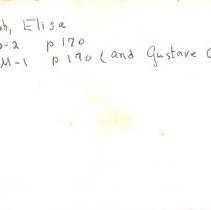 Elisa
-2 p 170
M-1 p 170 (and Gustave